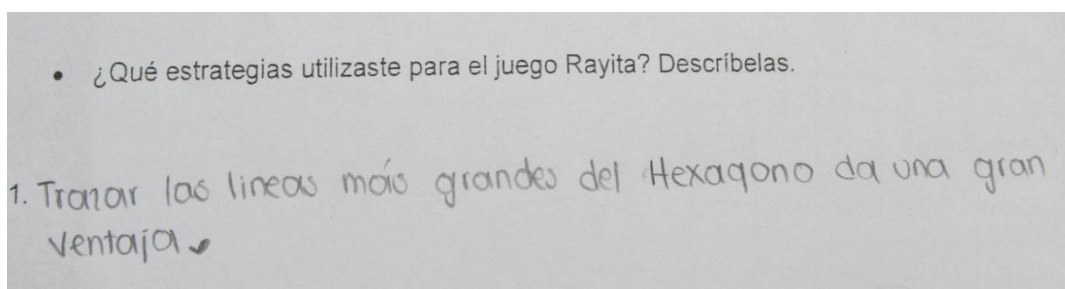 • ¿Qué estrategias utilizaste para el juego Rayita? Descríbelas.
1. Trazar las lineas más grandes del Hexagono da una gran
ventaja.